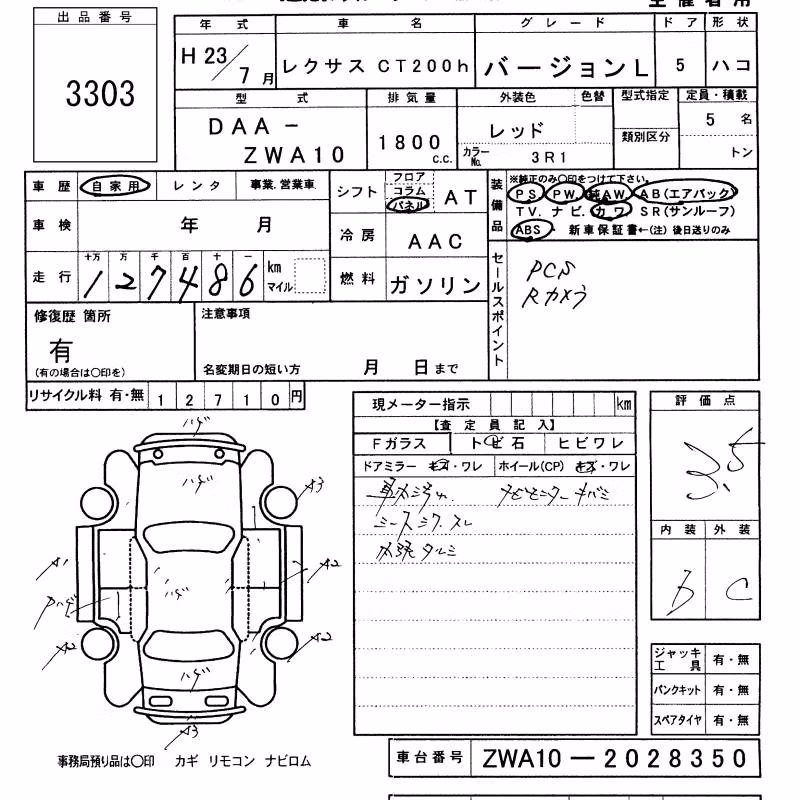 出品番号
3303
年式 車名 グレード ドア 形状
H 23/7 月 レクサス CT200h バージョンL 5 ハコ
型式 排気量 外装色 色替 型式指定 定員・積載
DAA-ZWA10 1800 c.c. レッド 類別区分 5 名
カラーNo. 3R1 トン
車歴 自家用 レンタ 事業.営業車
シフト フロア コラム パネル AT
装備品 ※純正のみ〇印をつけて下さい。
PS PW 純AW AB(エアバック)
TV. ナビ. カワ SR(サンルーフ)
ABS・新車保証書←(注)後日送りのみ
車検 年 月
冷房 AAC
走行 十万 万 千 百 十 一
127486 km マイル
燃料 ガソリン
セールスポイント
PCS
Rカメラ
修復歴 箇所
有
(有の場合は〇印を)
注意事項
名変期日の短い方 月 日まで
リサイクル料 有・無 12710円
現メーター指示 km
【査定員記入】
Fガラス トビ石 ヒビワレ
ドアミラー キズ・ワレ ホイール(CP) キズ・ワレ
車内汚れ
シースシワ.スレ
水張タルミ
評価点
3.5
内装 外装
b C
ハゲ
ハゲ
A3
A1
ハゲ
A2
A2
A2
ハゲ
A3
ジャッキ工具 有・無
パンクキット 有・無
スペアタイヤ 有・無
事務局預り品は〇印 カギ リモコン ナビロム
車台番号 ZWA10-2028350